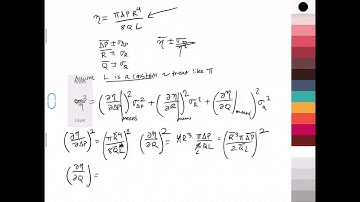 η = πΔPR⁴ / 8QL
ΔP̄ ± σΔP
R̄ ± σR
Q̄ ± σQ
η̄ ± ση
Assume L is a constant & treat like π
ση² = (∂η/∂ΔP)² means σ²ΔP + (∂η/∂R)² means σR² + (∂η/∂Q)² means σQ²
Layer
(∂η/∂ΔP)² = (πR⁴/8QL)² (∂η/∂R)² = 4R³ πΔP/8QL = (R³πΔP/2QL)²
(∂η/∂Q) =